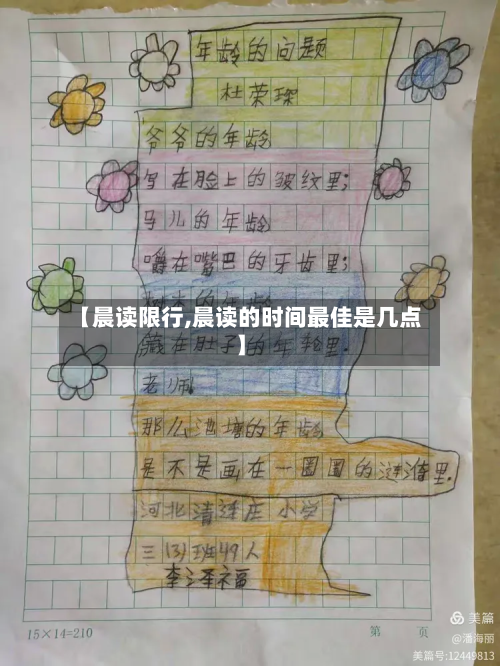 年龄的问题
杜荣琛
爷爷的年龄
写在脸上的皱纹里;
马儿的年龄
嚼在嘴巴的牙齿里;
的年龄
【晨读限行,晨读的时间最佳是几点
】
藏在肚子的年轮里.
老师
那么池塘的年龄
是不是画在一圈圈的涟漪里.
河北清河庄小学
三(3)班49人
李泽福
15×14=210
第 页
美篇
@潘海丽
美篇号:12449813